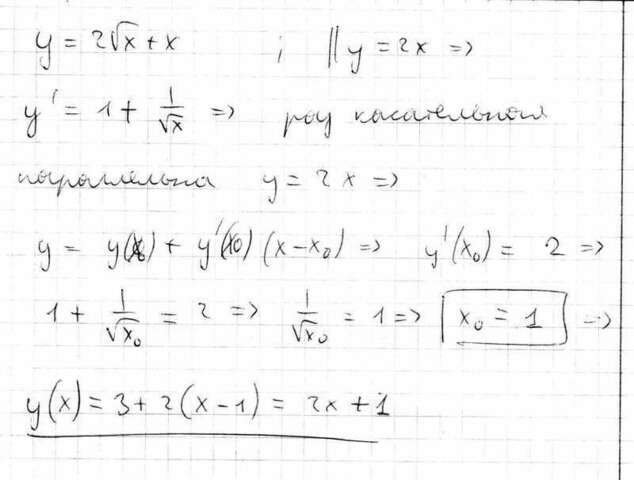 y = 2√x + x ; || y = 2x =>
y' = 1 + 1/√x => раз касательная
параллельна y = 2x =>
y = y(x₀) + y'(x₀)(x - x₀) => y'(x₀) = 2 =>
1 + 1/√x₀ = 2 => 1/√x₀ = 1 => x₀ = 1 =>
y(x) = 3 + 2(x - 1) = 2x + 1